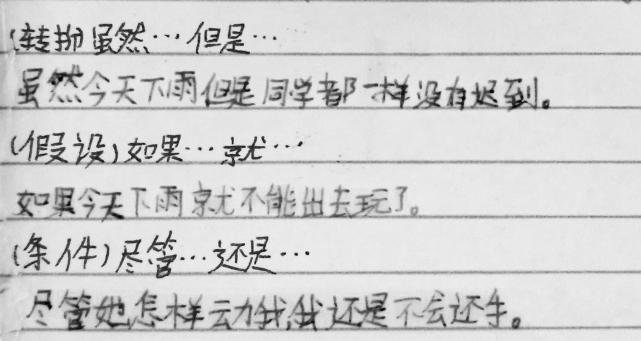 (转折虽然…但是…
虽然今天下雨但是同学都一样没有迟到。
(假设)如果…就…
如果今天下雨就不能出去玩了。
(条件)尽管…还是…
尽管她怎样动我,我还是不会还手。